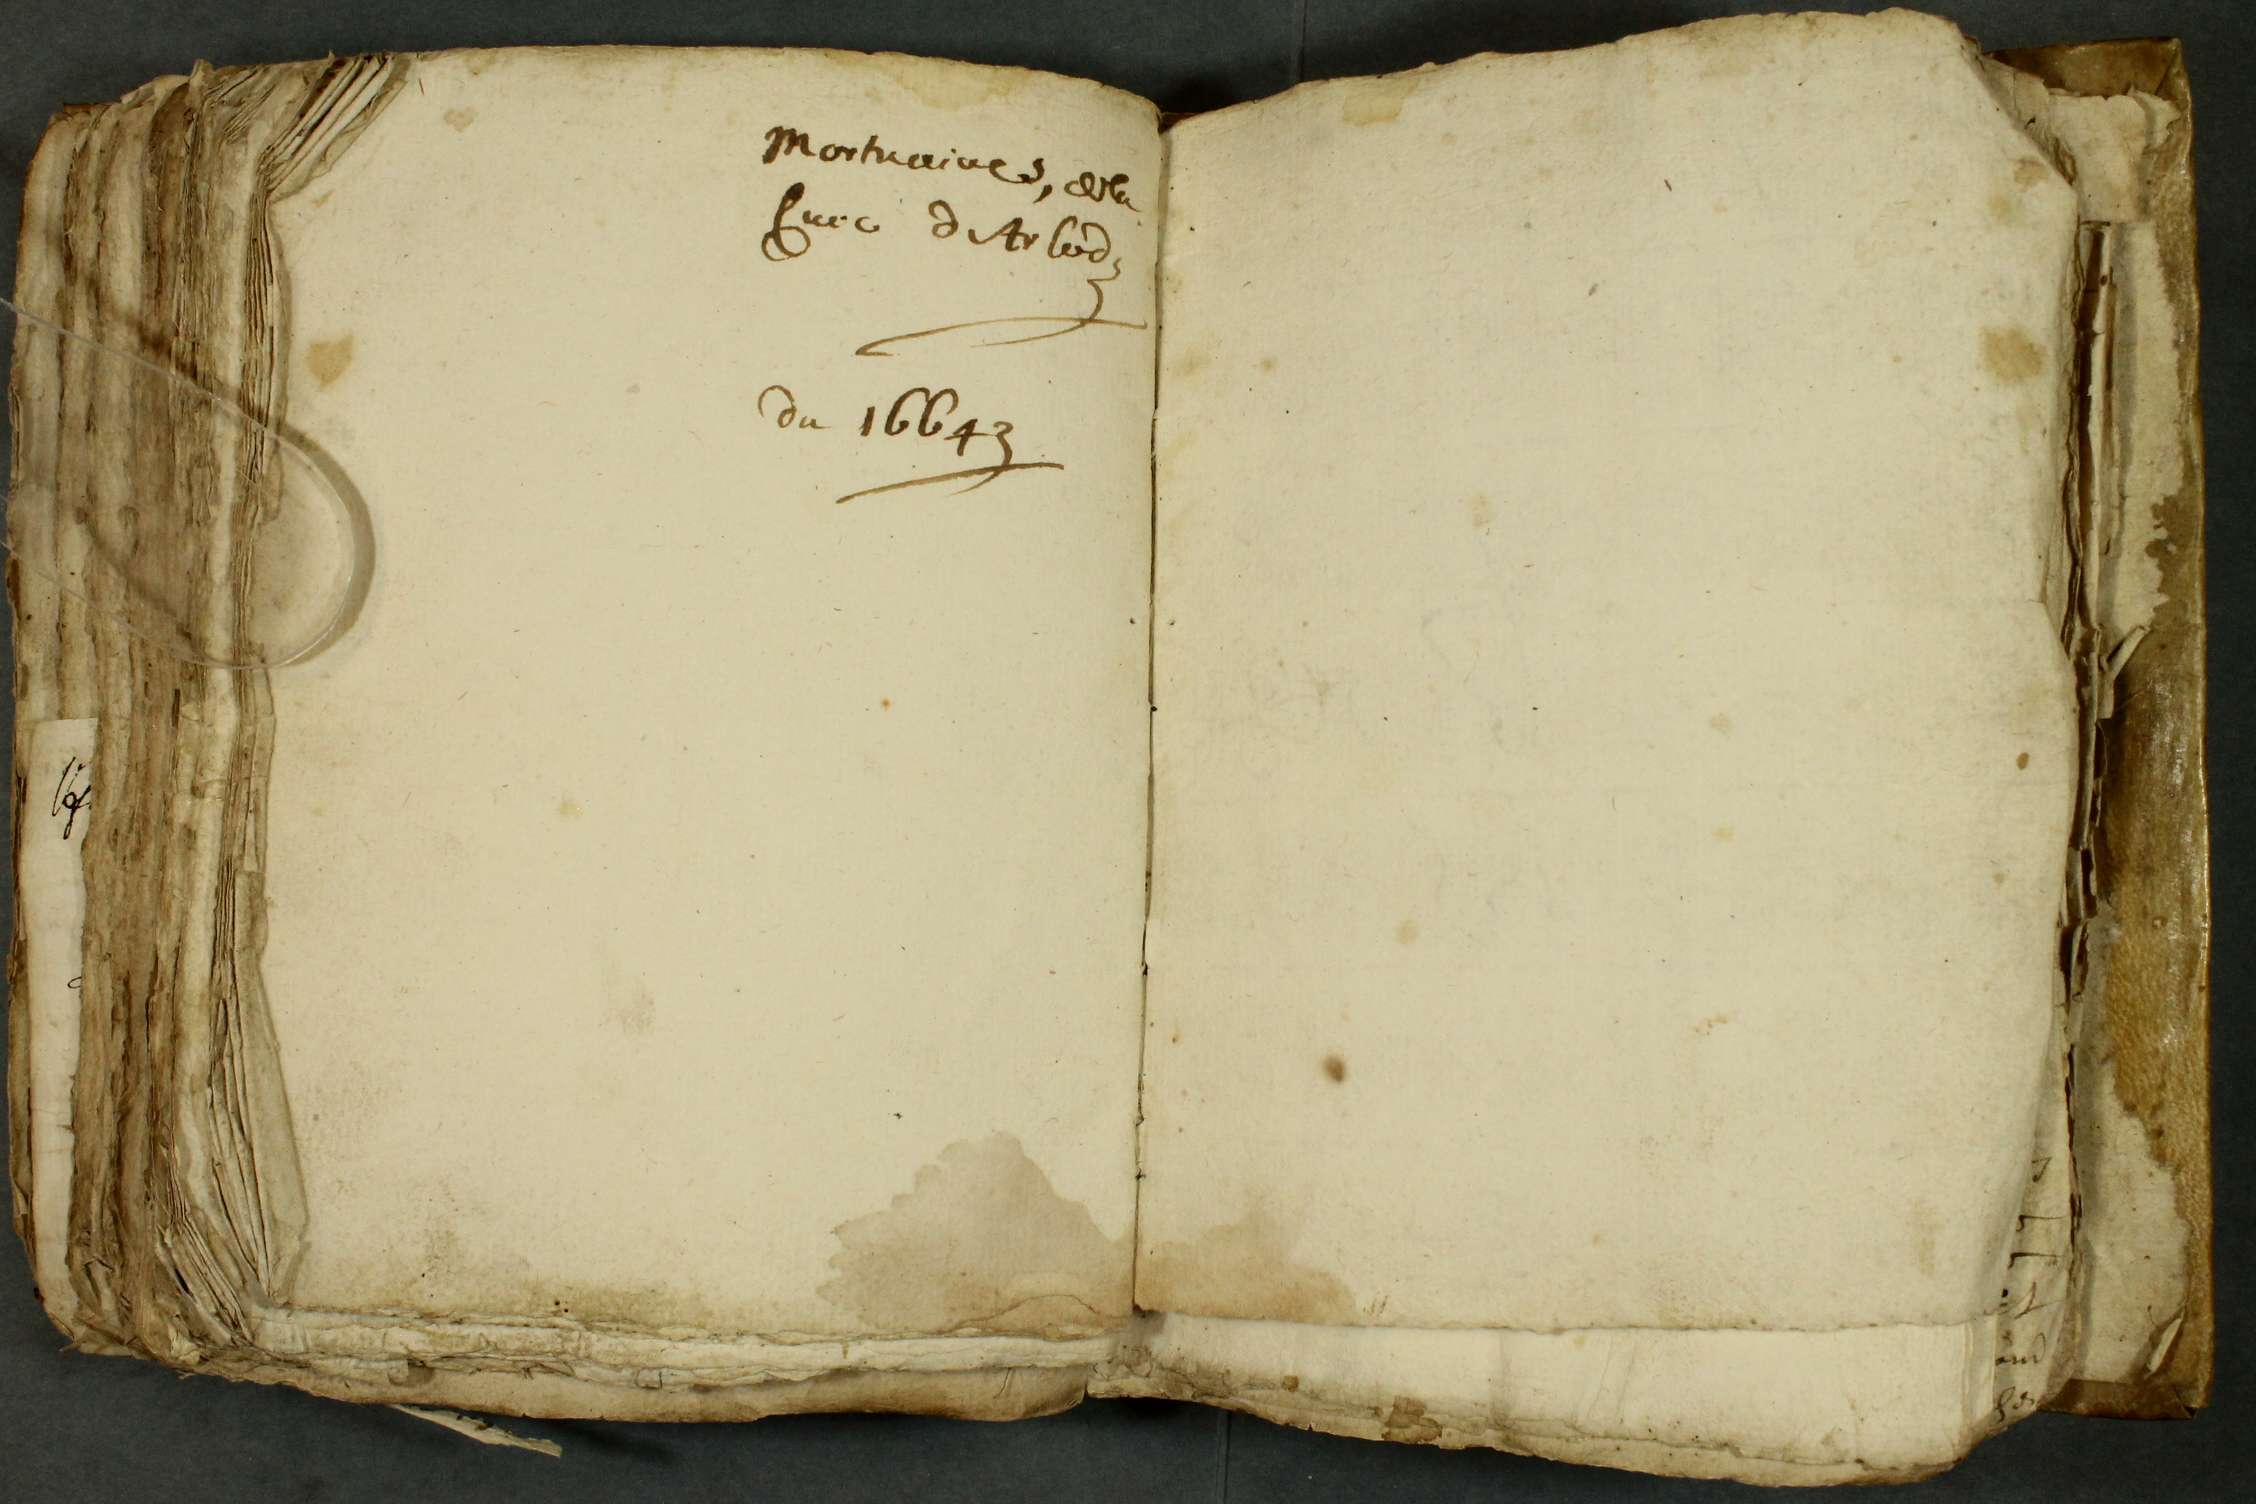 Mortuaires, de la
Cure d'Arbod
du 1664